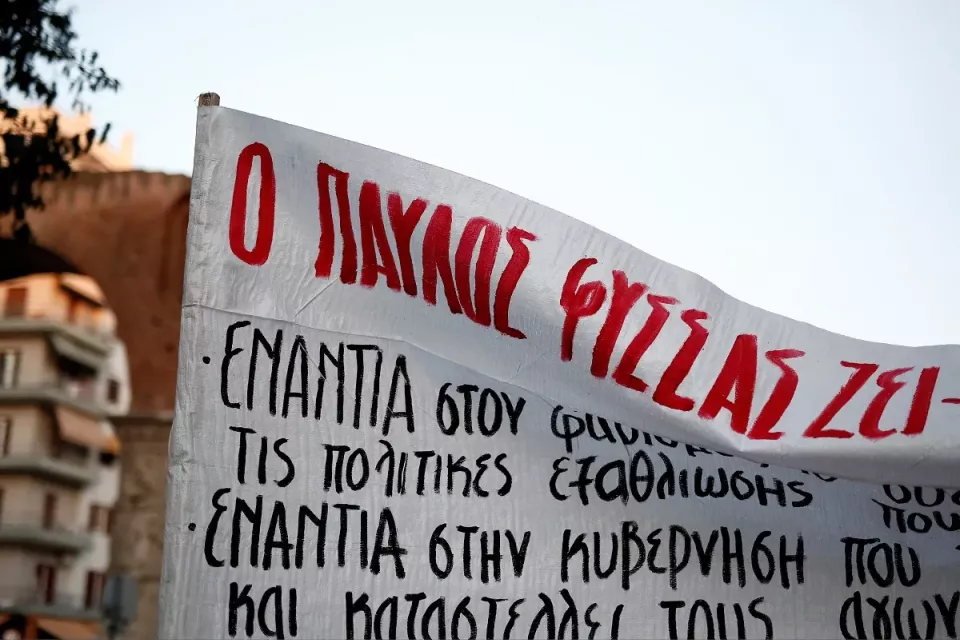 Ο ΠΑΥΛΟΣ ΦΥΣΣΑΣ ΖΕΙ-
·ΕΝΑΝΤΙΑ στου
τις πολιτικες εξαθλίωσης που
·ΕΝΑΝΤΙΑ στην κυβερνηση που
και καταστελλει τους αγων